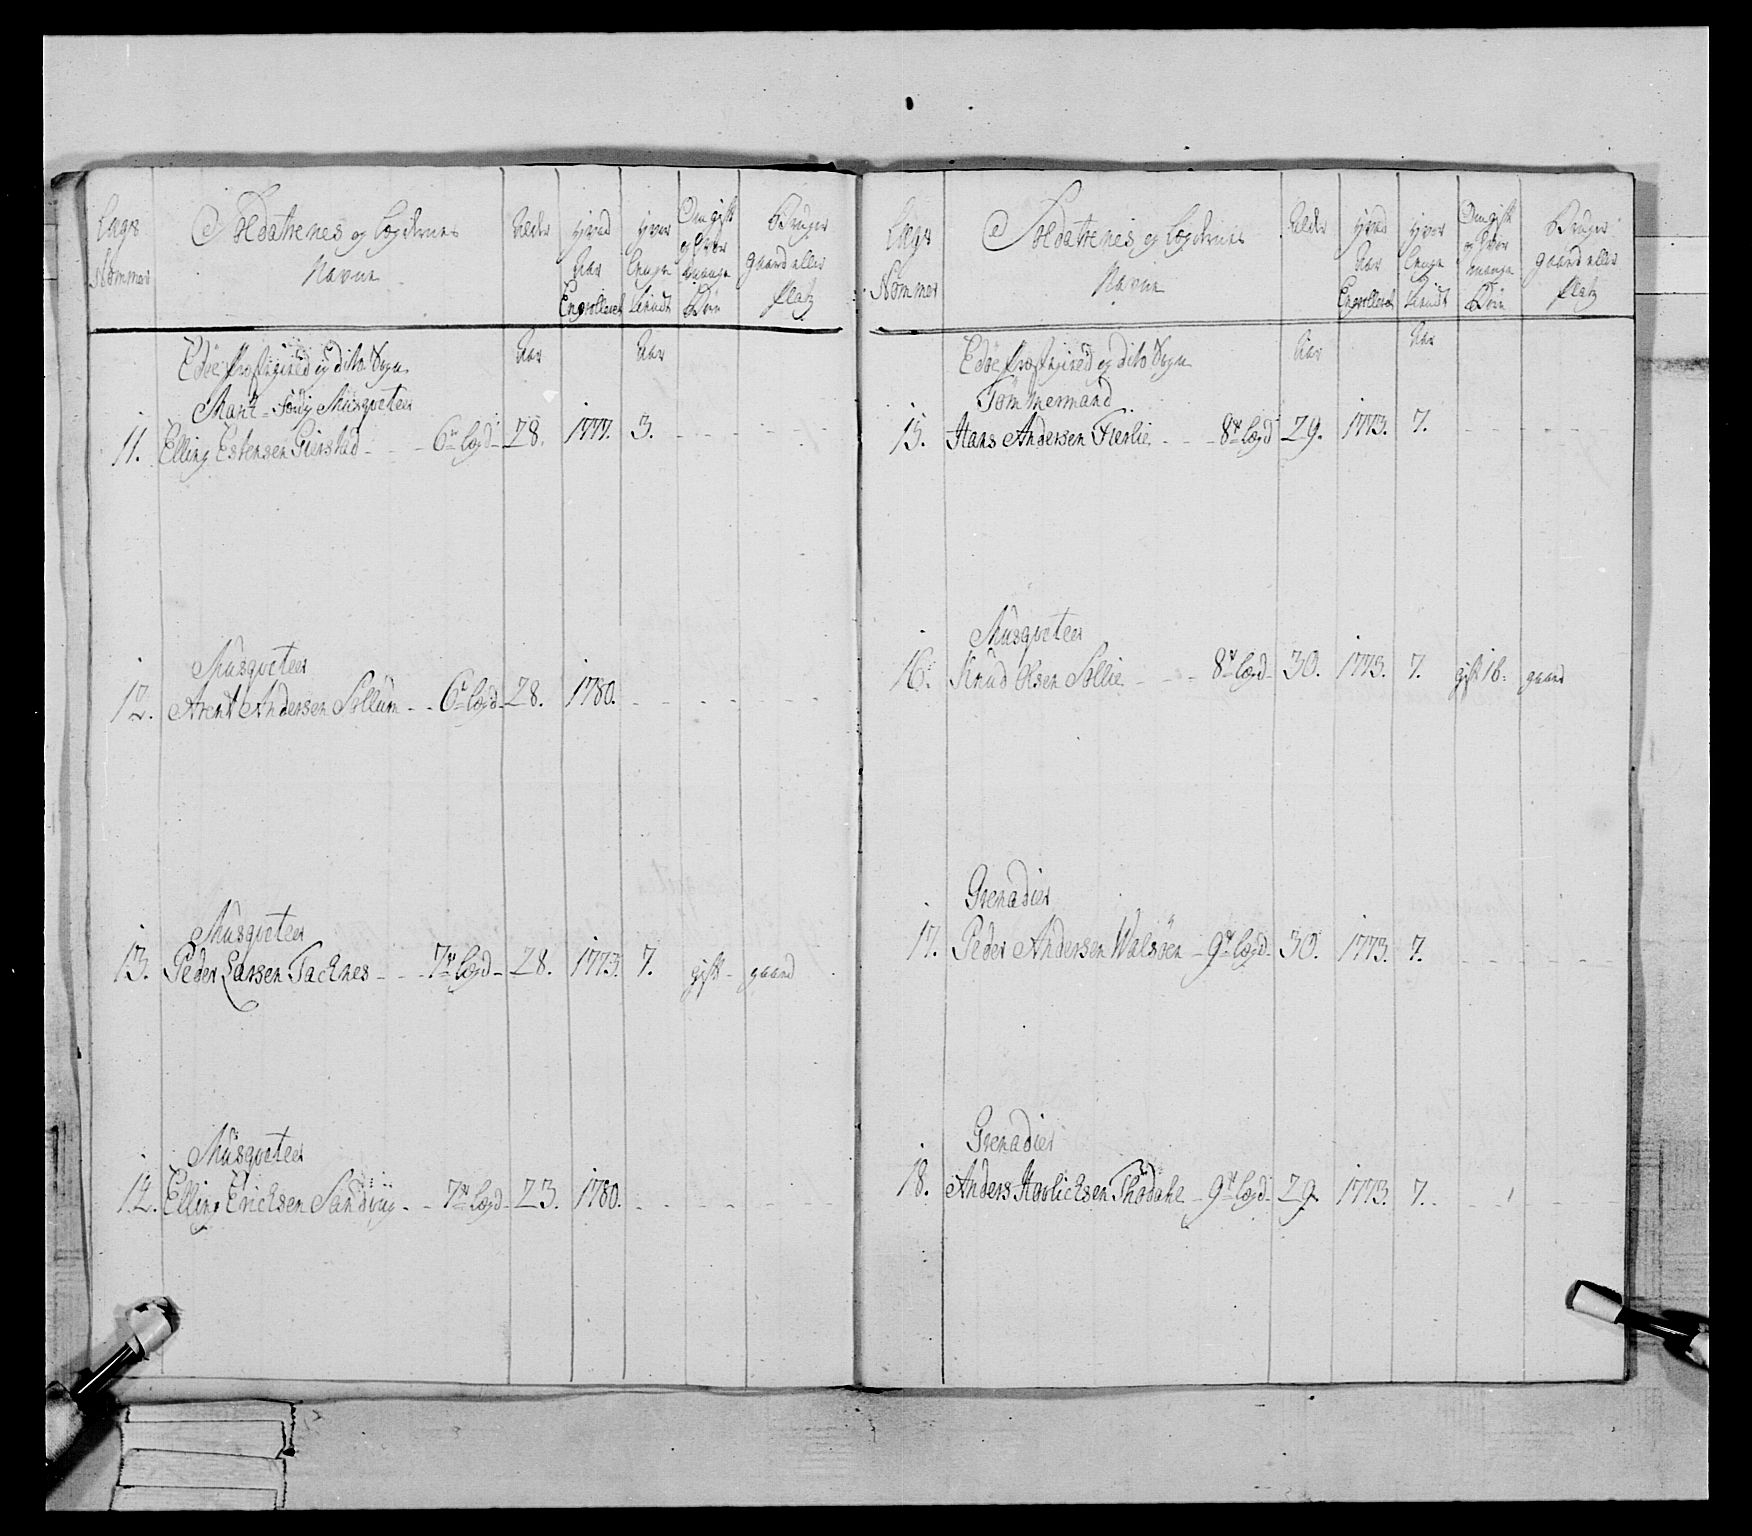 Lægs Nommer | Soldatternes og Lægdernes Navne | Alder | Hvad Aar Engrolleret | Hvor lenge tiendt | Om gift og hvor mange Børn | Bruger gaard eller Platz
Edöe Præstegield og dito Sogn | Aar | Aar
Musqveteer
11. Elling Estensen | 6te lægd | 28. | 1777. | 3.
Musqveteer
12. Arent Andersen Sollüm | 6te lægd | 28. | 1780.
Musqveteer
13. Peder Larsen Tacknes | 7de lægd | 28. | 1773. | 7. | gift | gaard
Musqveteer
14. Elling Ericksen Sandviig | 7de lægd | 23. | 1780.
Lægs Nommer | Soldatternes og Lægdernes Navne | Alder | Hvad Aar Engrolleret | Hvor lenge tiendt | Om gift og hvor mange Børn | Bruger gaard eller Platz
Edöe Præstegield og dito Sogn | Aar | Aar
Tömmermand
15. Hans Andersen | 8de lægd | 29. | 1773. | 7.
Musqveteer
16. Knud Olsen Sollie | 8de lægd | 30. | 1773. | 7. | gift 1b: | gaard
Grenadier
17. Peder Andersen Walsöen | 9de lægd | 30. | 1773. | 7.
Grenadier
18. Anders | 9de lægd | 29. | 1773. | 7.